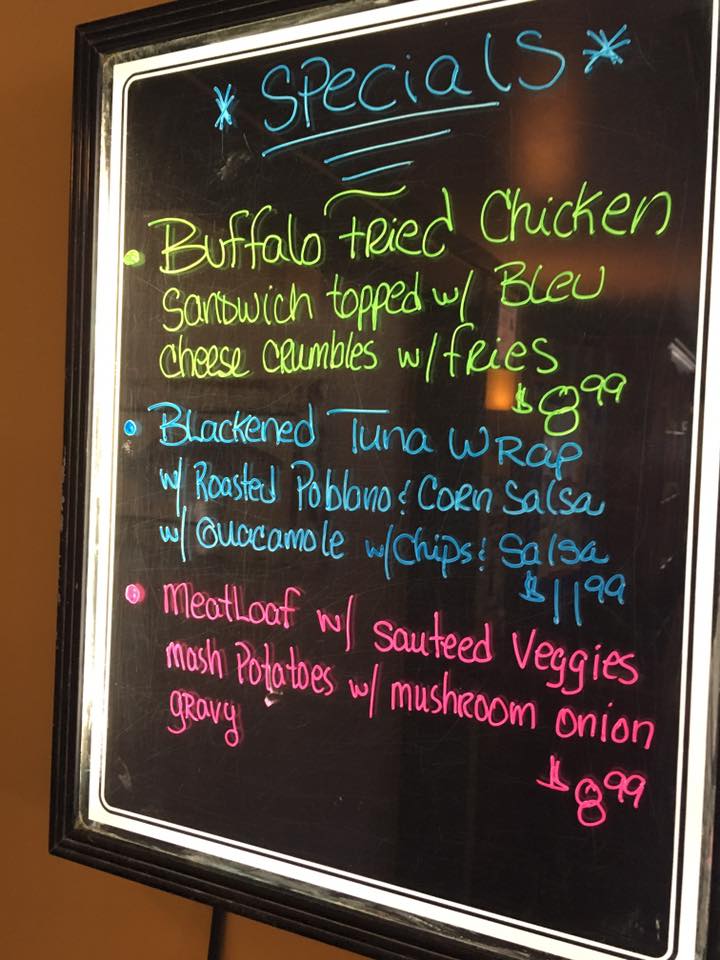 * Specials *
• Buffalo Fried Chicken
Sandwich topped w/ Bleu
Cheese Crumbles w/ fries
$8.99
• Blackened Tuna Wrap
w/ Roasted Poblano & Corn Salsa
w/ Guacamole w/ Chips & Salsa
$11.99
• Meatloaf w/ sauteed Veggies
mash Potatoes w/ mushroom onion
gravy
$8.99